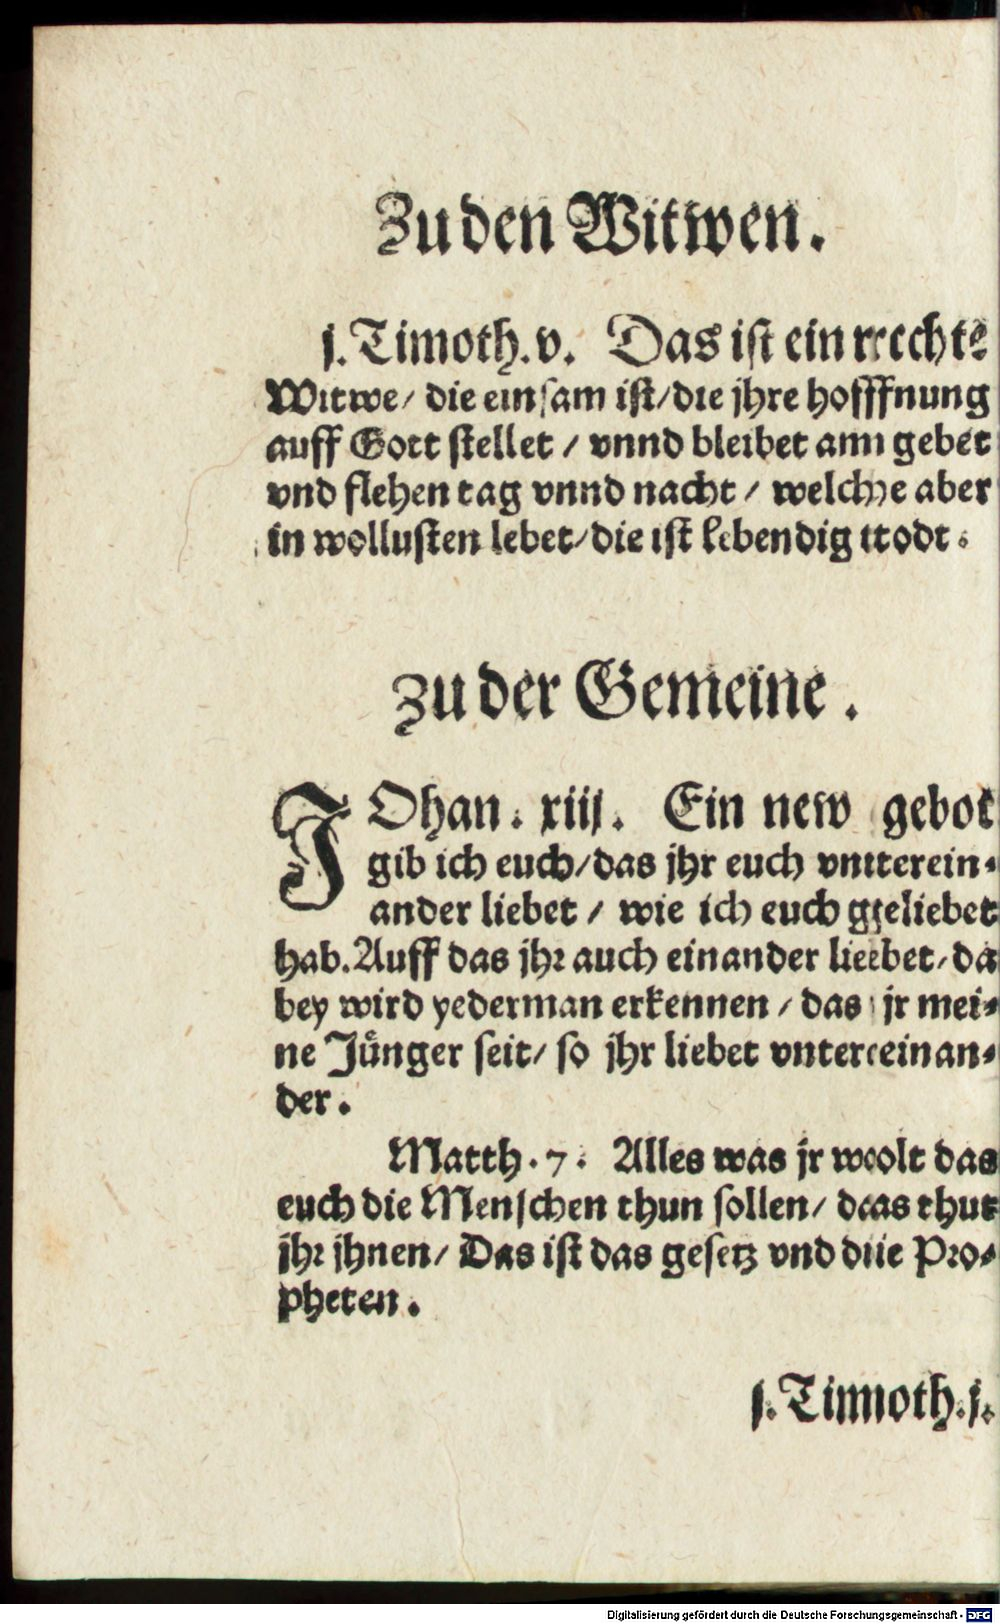 Zu den Witwen.
j. Timoth. v. Das ist ein rechte
Witwe/ die einsam ist/ die jhre hoffnung
auff Gott stellet / vnnd bleibet am gebet
vnd flehen tag vnnd nacht / welche aber
in wollusten lebet/ die ist lebendig todt.
Zu der Gemeine.
JOhan. xiij. Ein new gebot
gib ich euch/ das jhr euch vnterein-
ander liebet / wie ich euch geliebet
hab. Auff das jhr auch einander liebet/ da
bey wird yederman erkennen / das jr mei-
ne Jünger seit/ so jhr liebet vntereinan-
der.
Matth. 7. Alles was jr wolt das
euch die Menschen thun sollen/ das thut
jhr jhnen/ Das ist das gesetz vnd die Pro-
pheten.
j. Timoth. j.
Digitalisierung gefördert durch die Deutsche Forschungsgemeinschaft - DFG